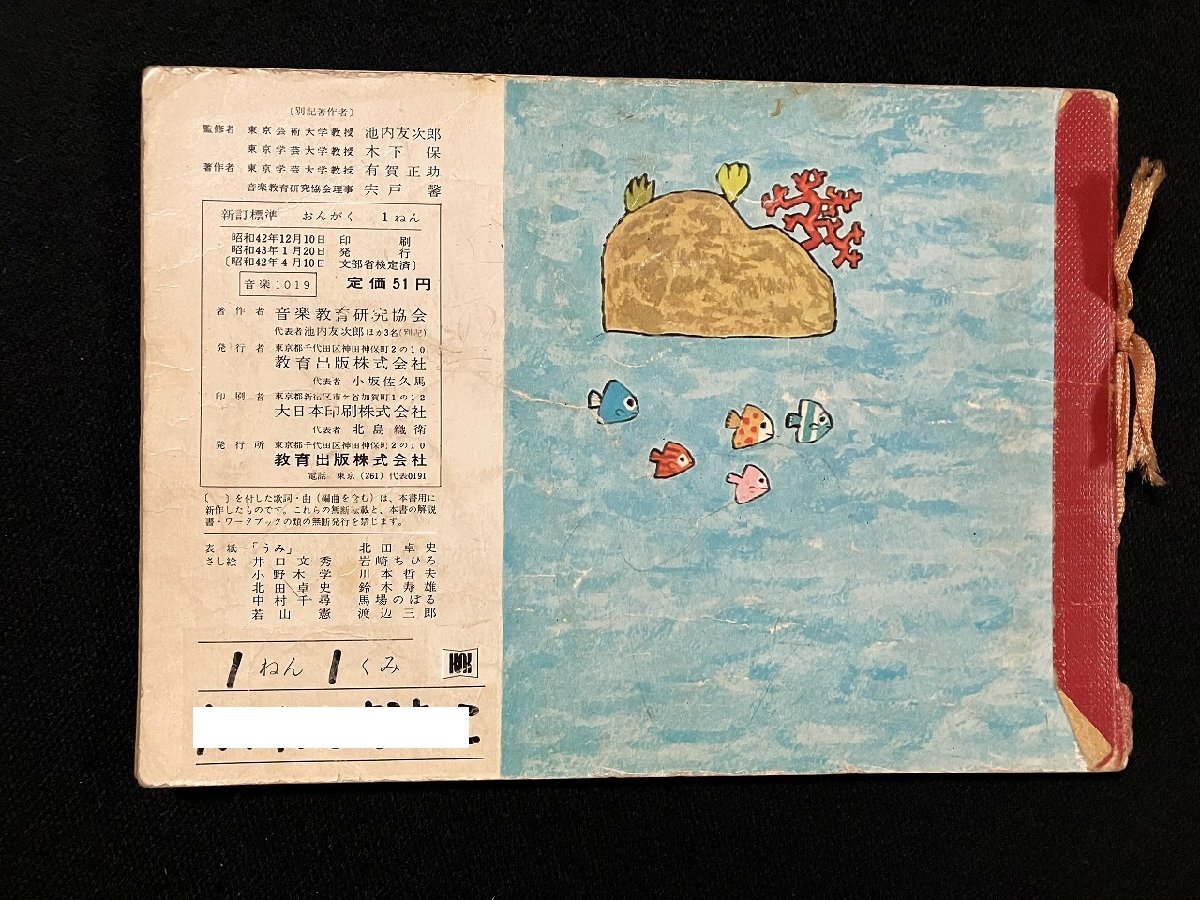 〔別記著作者〕
監修者 東京芸術大学教授 池内友次郎
東京学芸大学教授 木下 保
著作者 東京学芸大学教授 有賀正助
音楽教育研究協会理事 宍戸 馨
新訂標準 おんがく 1ねん
昭和42年12月10日 印刷
昭和43年1月20日 発行
〔昭和42年4月10日 文部省検定済〕
音楽:019 定価 51円
著作者 音楽教育研究協会
代表者 池内友次郎 ほか3名(別記)
発行者 東京都千代田区神田神保町2の10
教育出版株式会社
代表者 小坂佐久馬
印刷者 東京都新宿区市ヶ谷加賀町1の12
大日本印刷株式会社
代表者 北島織衛
発行所 東京都千代田区神田神保町2の10
教育出版株式会社
電話 東京 (261) 代表0191
〔 〕を付した歌詞・曲(編曲を含む)は、本書用に
新作したものです。これらの無断転載と、本書の解説
書・ワークブックの類の無断発行を禁じます。
表紙 「うみ」 北田卓史
さし絵 井口文秀 岩崎ちひろ
小野木学 川本哲夫
北田卓史 鈴木寿雄
中村千尋 馬場のぼる
若山 憲 渡辺三郎
1 ねん 1 くみ